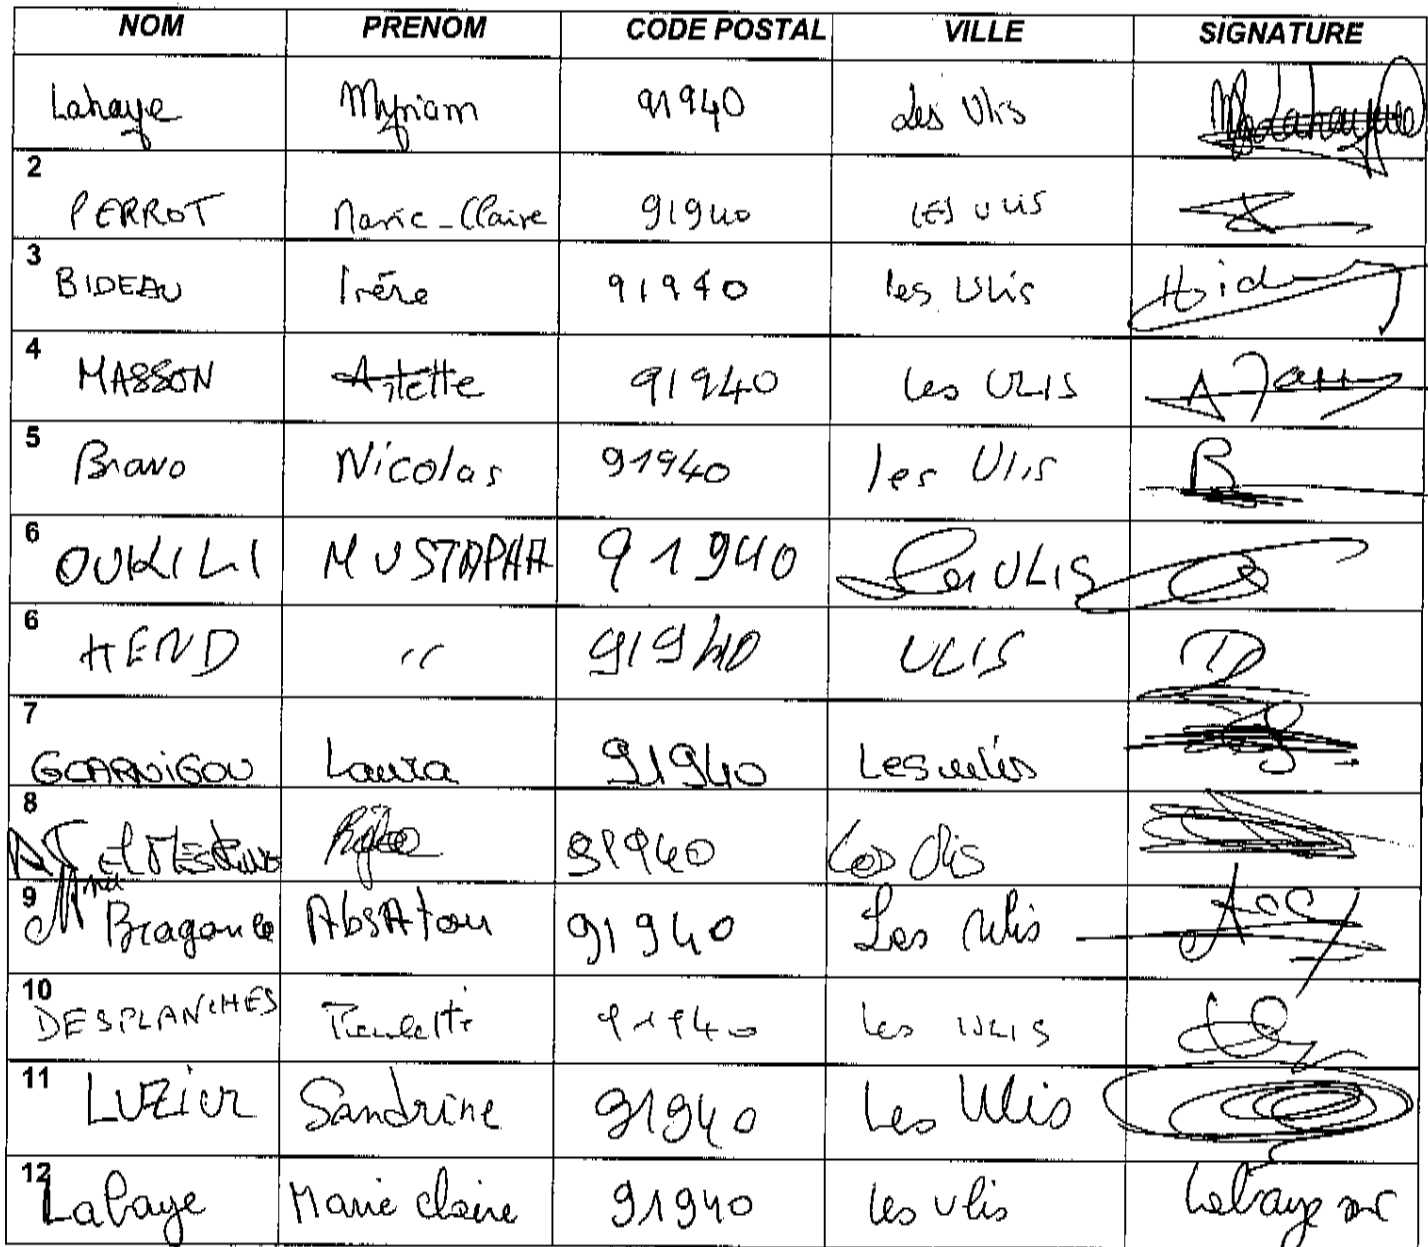 NOM PRENOM CODE POSTAL VILLE SIGNATURE
Lahaye Myriam 91940 Les Ulis
2 PERROT Marie-Claire 91940 LES ULIS
3 BIDEAU Irène 91940 les Ulis
4 MASSON Arlette 91940 Les ULIS
5 Bravo Nicolas 91940 les Ulis B
6 OUKILI MUSTAPHA 91940 Les ULIS
6 HEND " 91940 ULIS
7 Laura 91940 Les ulis
8 91940 Les Ulis
9 Bragance AbsAtou 91940 Les Ulis
10 DESPLANCHES Paulette 91940 Les ULIS
11 LUZIER Sandrine 91940 Les Ulis
12 Lahaye Marie claire 91940 les Ulis Lahaye mc